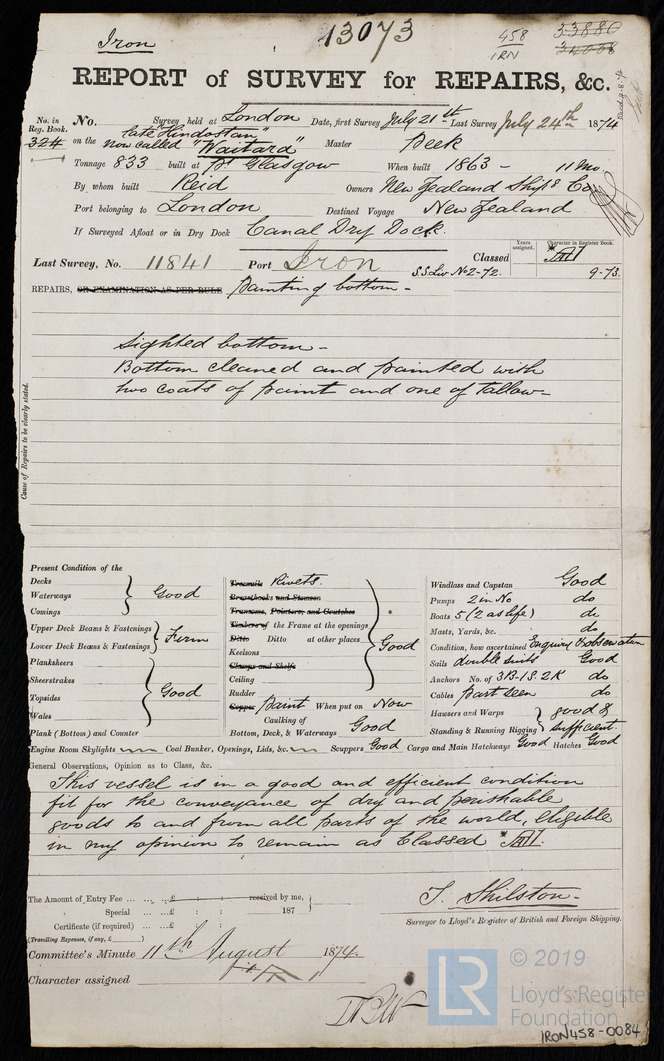 Iron
13073
458
IRN
33880
34038
REPORT of SURVEY for REPAIRS, &c.
No. in Reg. Book.
324
No. Survey held at London Date, first Survey July 21st Last Survey July 24th 1874
on the late "Hindostan" now called "Waitara" Master Peek
Tonnage 833 built at Pt Glasgow When built 1863 - 11 Mo
By whom built Reid Owners New Zealand Ship'g Co.
Port belonging to London Destined Voyage New Zealand
If Surveyed Afloat or in Dry Dock Canal Dry Dock.
Years assigned.
Character in Register Book.
Last Survey, No. 11841 Port Iron Classed
SS Liv No 2-72. 9-73.
REPAIRS, OR EXAMINATION AS PER RULE Painting bottom -
Sighted bottom -
Bottom cleaned and painted with
two coats of paint and one of tallow -
Cause of Repairs to be clearly stated.
Present Condition of the
Decks
Waterways Good
Comings
Upper Deck Beams & Fastenings
Lower Deck Beams & Fastenings Firm
Planksheers
Sheerstrakes
Topsides Good
Wales
Plank (Bottom) and Counter
Treenails Rivets.
Breasthooks and Stemson
Transoms, Pointers, and Crutches
Timbers of the Frame at the openings
Ditto Ditto at other places Good
Keelsons
Clamps and Shelfs
Ceiling
Rudder
Copper Paint When put on Now
Caulking of
Bottom, Deck, & Waterways Good
Windlass and Capstan Good
Pumps 2 in No do
Boats 5 (2 as life) do
Masts, Yards, &c. do
Condition, how ascertained Enquiry & observation
Sails double suits Good
Anchors No. of 3B.1S.2K do
Cables Part seen do
Hawsers and Warps
Standing & Running Rigging good & sufficient
Engine Room Skylights Coal Bunker, Openings, Lids, &c. Scuppers Good Cargo and Main Hatchways Good Hatches Good
General Observations, Opinion as to Class, &c.
This vessel is in a good and efficient condition
fit for the conveyance of dry and perishable
goods to and from all parts of the world, Eligible
in my opinion to remain as Classed
The Amount of Entry Fee ... £ : : received by me,
Special ... £ : : 187
Certificate (if required) ... £ : :
(Travelling Expenses, if any, £ )
T. Shilston
Surveyor to Lloyd's Register of British and Foreign Shipping.
Committee's Minute 11th August 1874.
Character assigned
LR
© 2019
Lloyd's Register
Foundation
IRON458-0084